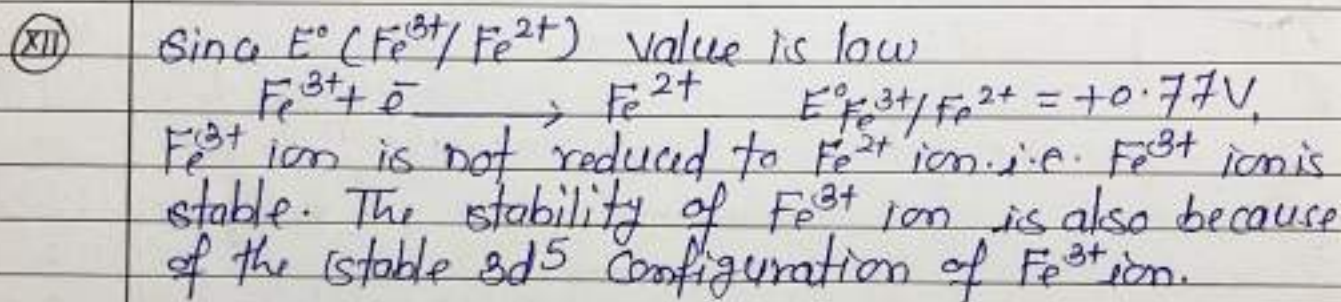 XII Since E° (Fe³⁺/Fe²⁺) value is low
Fe³⁺ + ē ⟶ Fe²⁺ E°Fe³⁺/Fe²⁺ = +0.77V,
Fe³⁺ ion is not reduced to Fe²⁺ ion. i.e. Fe³⁺ ion is
stable. The stability of Fe³⁺ ion is also because
of the stable 3d⁵ Configuration of Fe³⁺ ion.